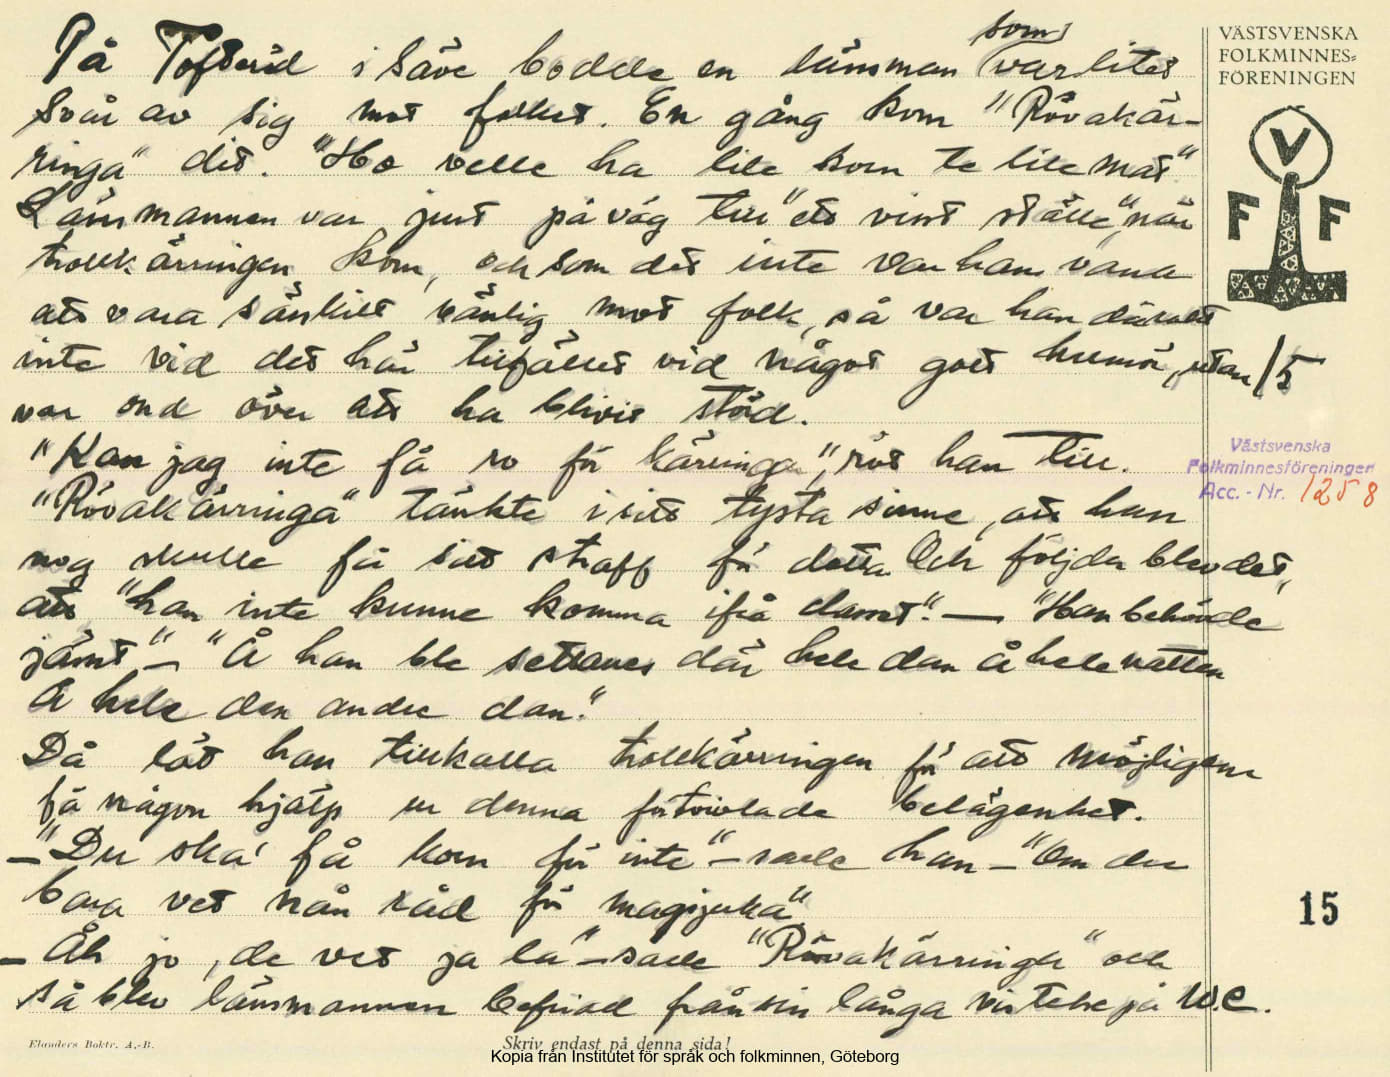 som
På Tofteröd i Säve bodde en länsman var litet
svår av sig mot folket. En gång kom "Rövakär-
ringa" dit. "Ho velle ha lite korn te lite mat"
Länsmannen var just på väg till "ett visst ställe", när
trollkärringen kom, och som det inte var hans vana
att vara särskilt vänlig mot folk, så var han därtill
inte vid det här tillfället vid något gott humör, utan
var ond över att ha blivit störd.
"Kan jag inte få ro för kärringa", röt han till.
"Rövakärringa" tänkte i sitt tysta sinne, att han
nog skulle få sitt straff för detta. Och följden blev det,
att "han inte kunne komma ifrå dasset". — "Han behövde
jämt" — "Å han ble settanes där hele dan å hele natten
å hele den andre dan."
Då lät han tillkalla trollkärringen för att möjligen
få någon hjälp ur denna förtvivlade belägenhet.
— "Du ska' få korn för inte" — sade han — "Om du
bara vet nån råd för magsjuka"
— Åh jo, de vet ja la" — sade "Rövakärringa" och
så blev länsmannen befriad från sin långa vistelse på W.C.
VÄSTSVENSKA
FOLKMINNES=
FÖRENINGEN
V
F F
15
Västsvenska
Folkminnesföreningen
Acc. - Nr. 1258
15
Elanders Boktr. A.-B.
Skriv endast på denna sida!
Kopia från Institutet för språk och folkminnen, Göteborg